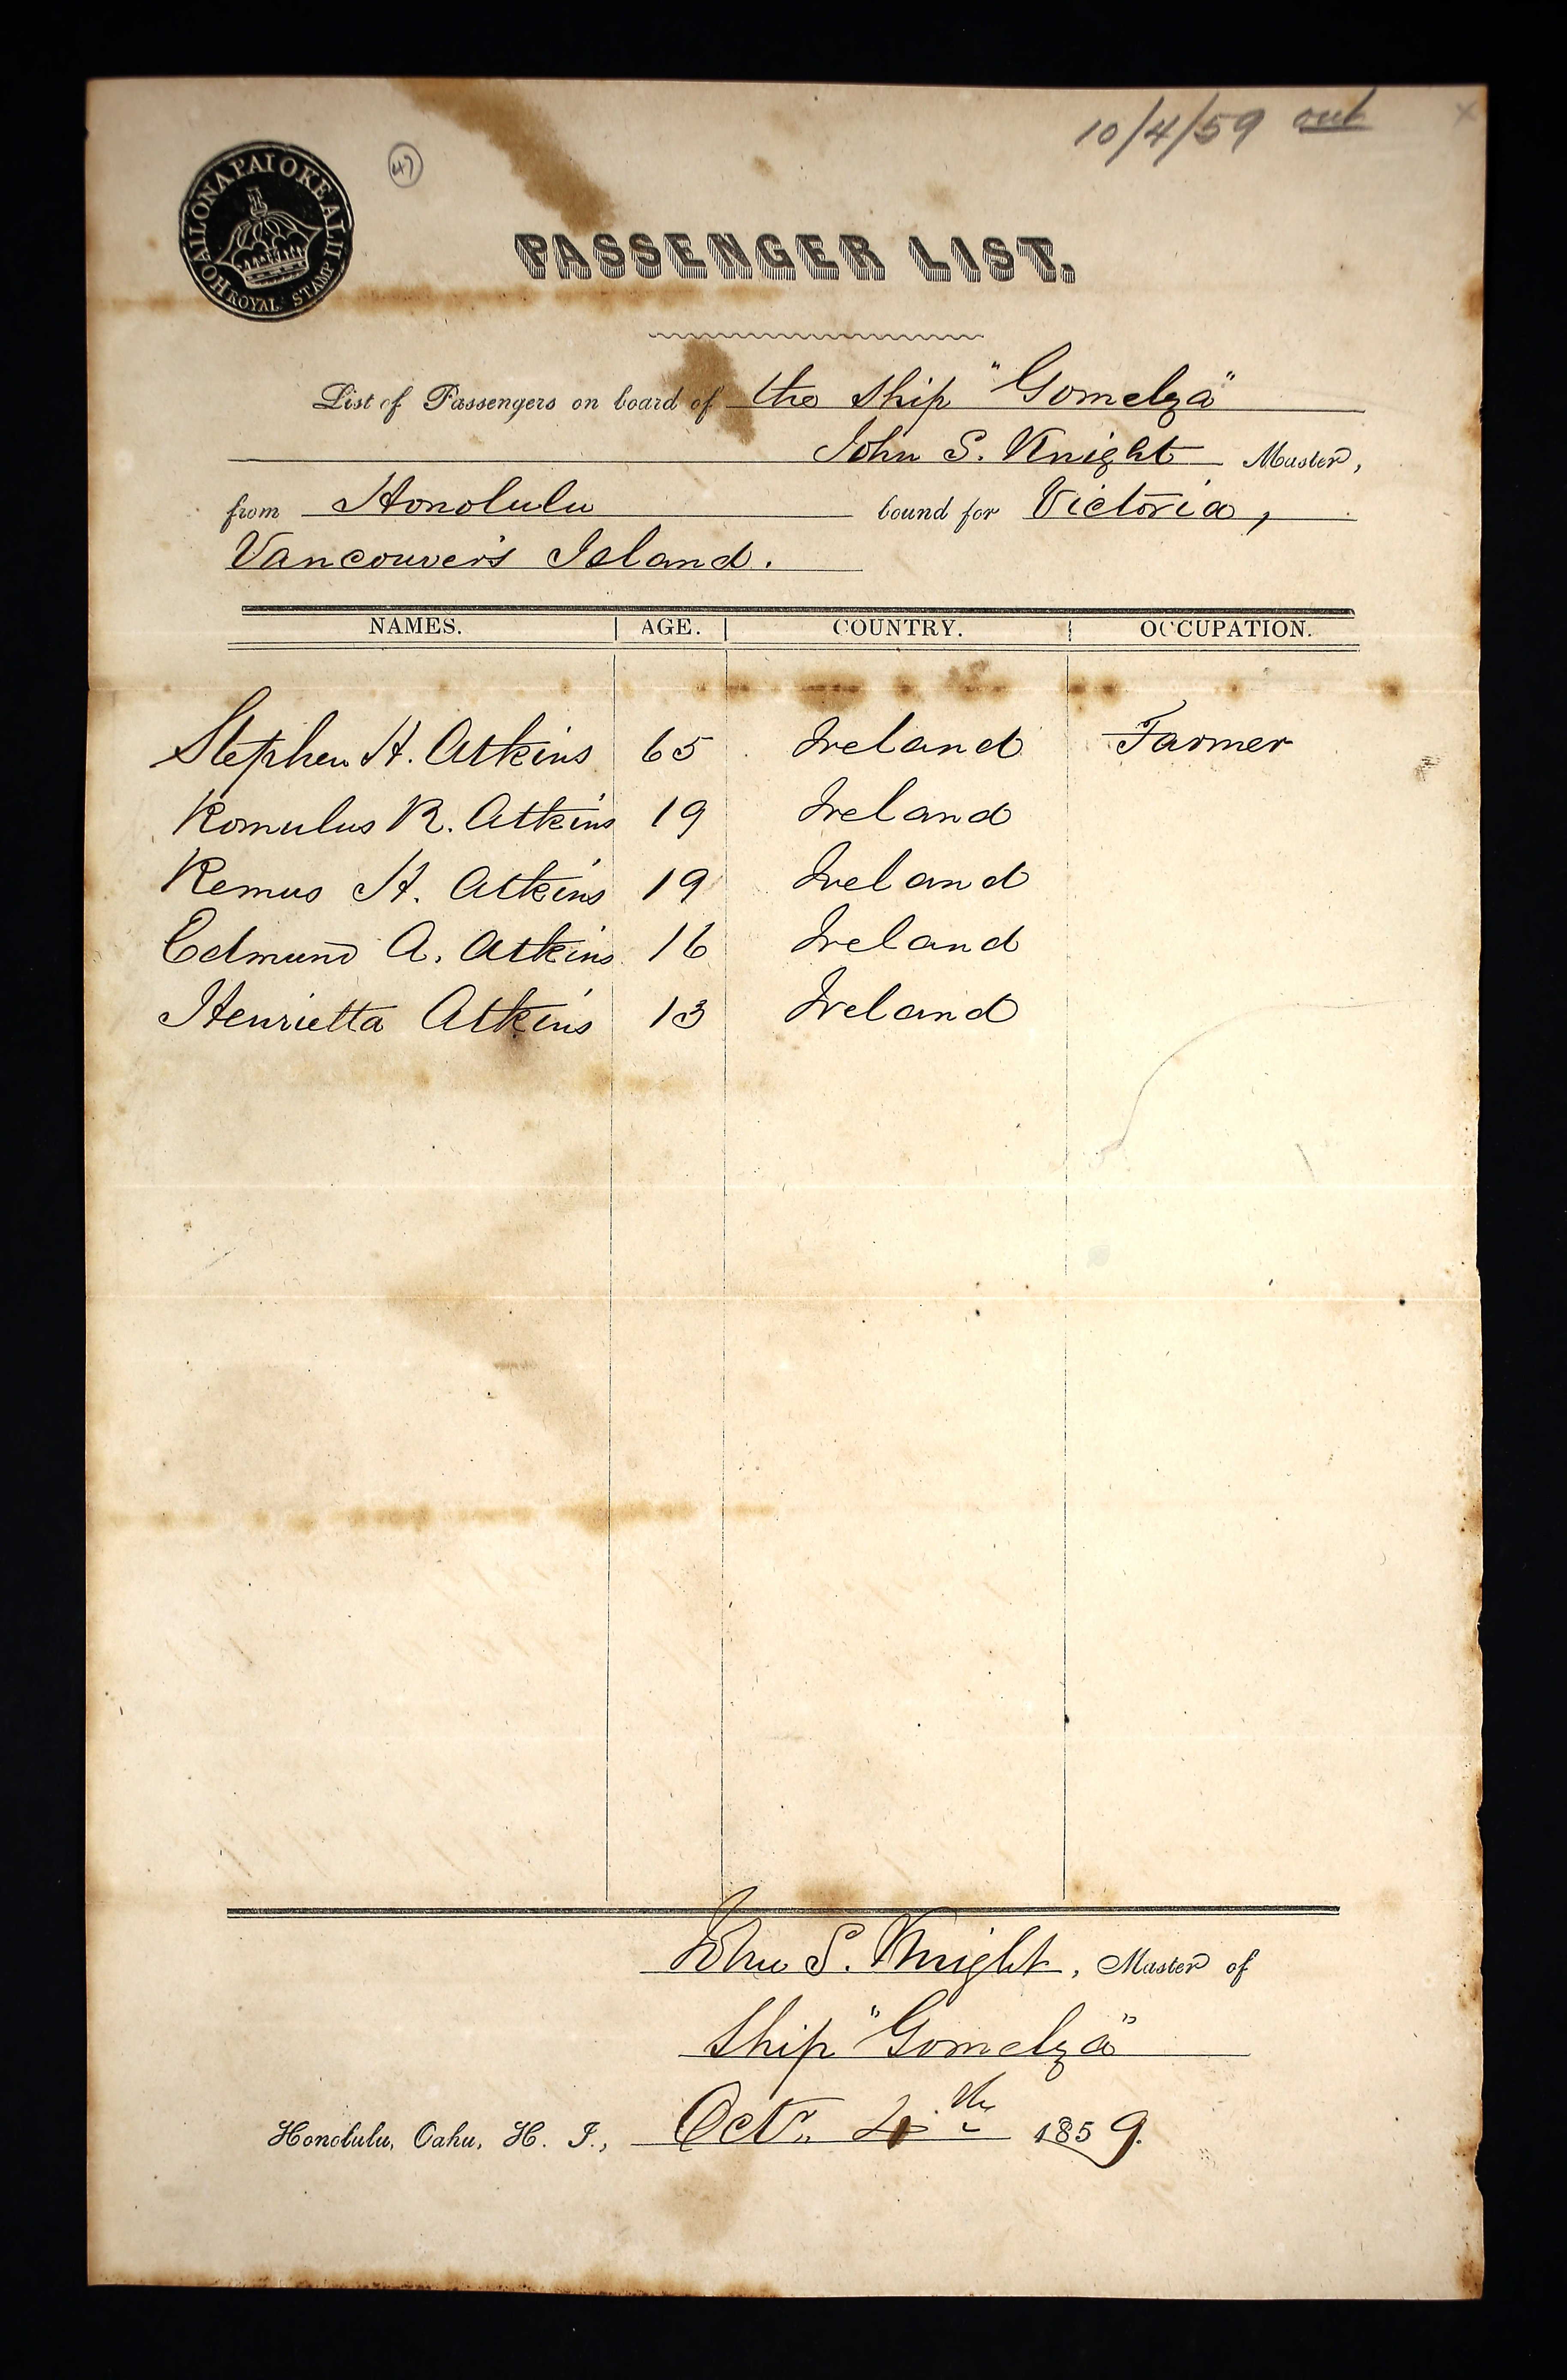 10/4/59 out
47
HOAILONA PAI O KE ALII
ROYAL STAMP
PASSENGER LIST.
List of Passengers on board of the Ship "Gomelza"
John S. Knight Master,
from Honolulu bound for Victoria,
Vancouver's Island.
NAMES. AGE. COUNTRY. OCCUPATION.
Stephen H. Atkins 65 Ireland Farmer
Romulus R. Atkins 19 Ireland
Remus H. Atkins 19 Ireland
Edmund A. Atkins 16 Ireland
Henrietta Atkins 13 Ireland
John S. Knight, Master of
Ship "Gomelza"
Honolulu, Oahu, H. I., Octr. 4th 1859.